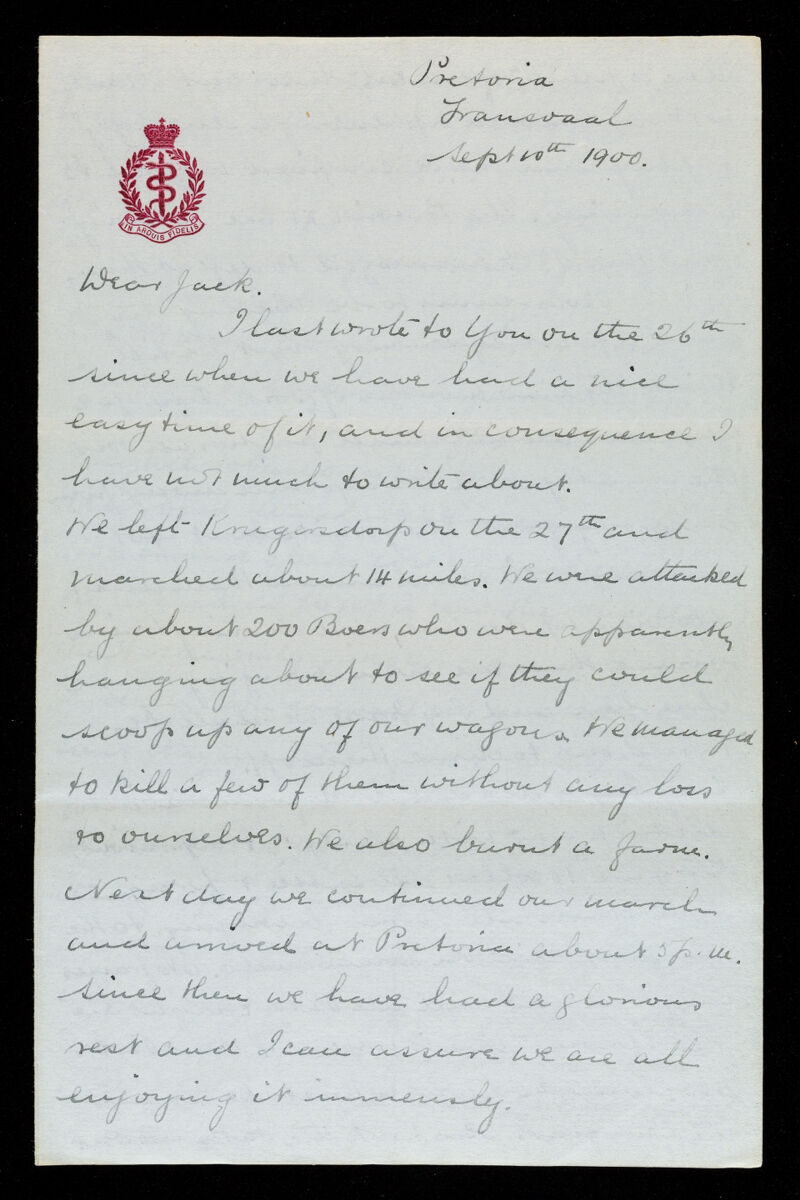 Pretoria
Transvaal
Sept 10th 1900.
IN ARDUIS FIDELIS
Dear Jack.
I last wrote to You on the 26th
since when we have had a nice
easy time of it, and in consequence I
have not much to write about.
We left Krugersdorp on the 27th and
marched about 14 miles. We were attacked
by about 200 Boers who were apparently
hanging about to see if they could
scoop up any of our wagons. We managed
to kill a few of them without any loss
to ourselves. We also burnt a farm.
Next day we continued our march
and arrived at Pretoria about 5 p.m.
since then we have had a glorious
rest and I can assure we are all
enjoying it immensly.